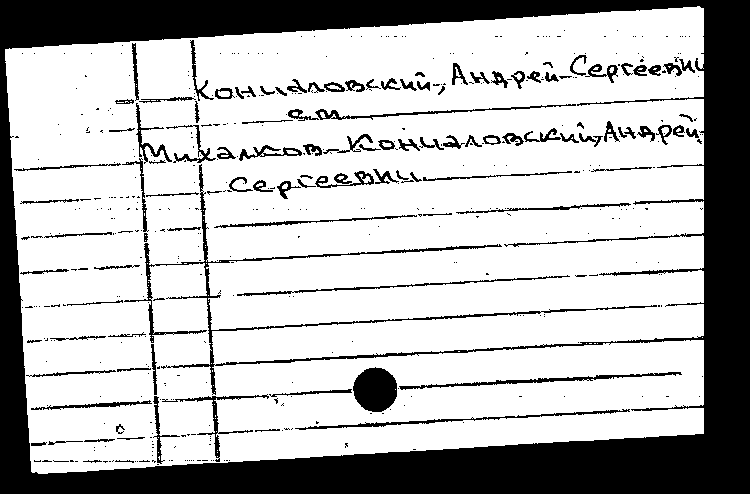 Кончаловский, Андрей Сергеевич
см.
Михалков-Кончаловский, Андрей
Сергеевич.